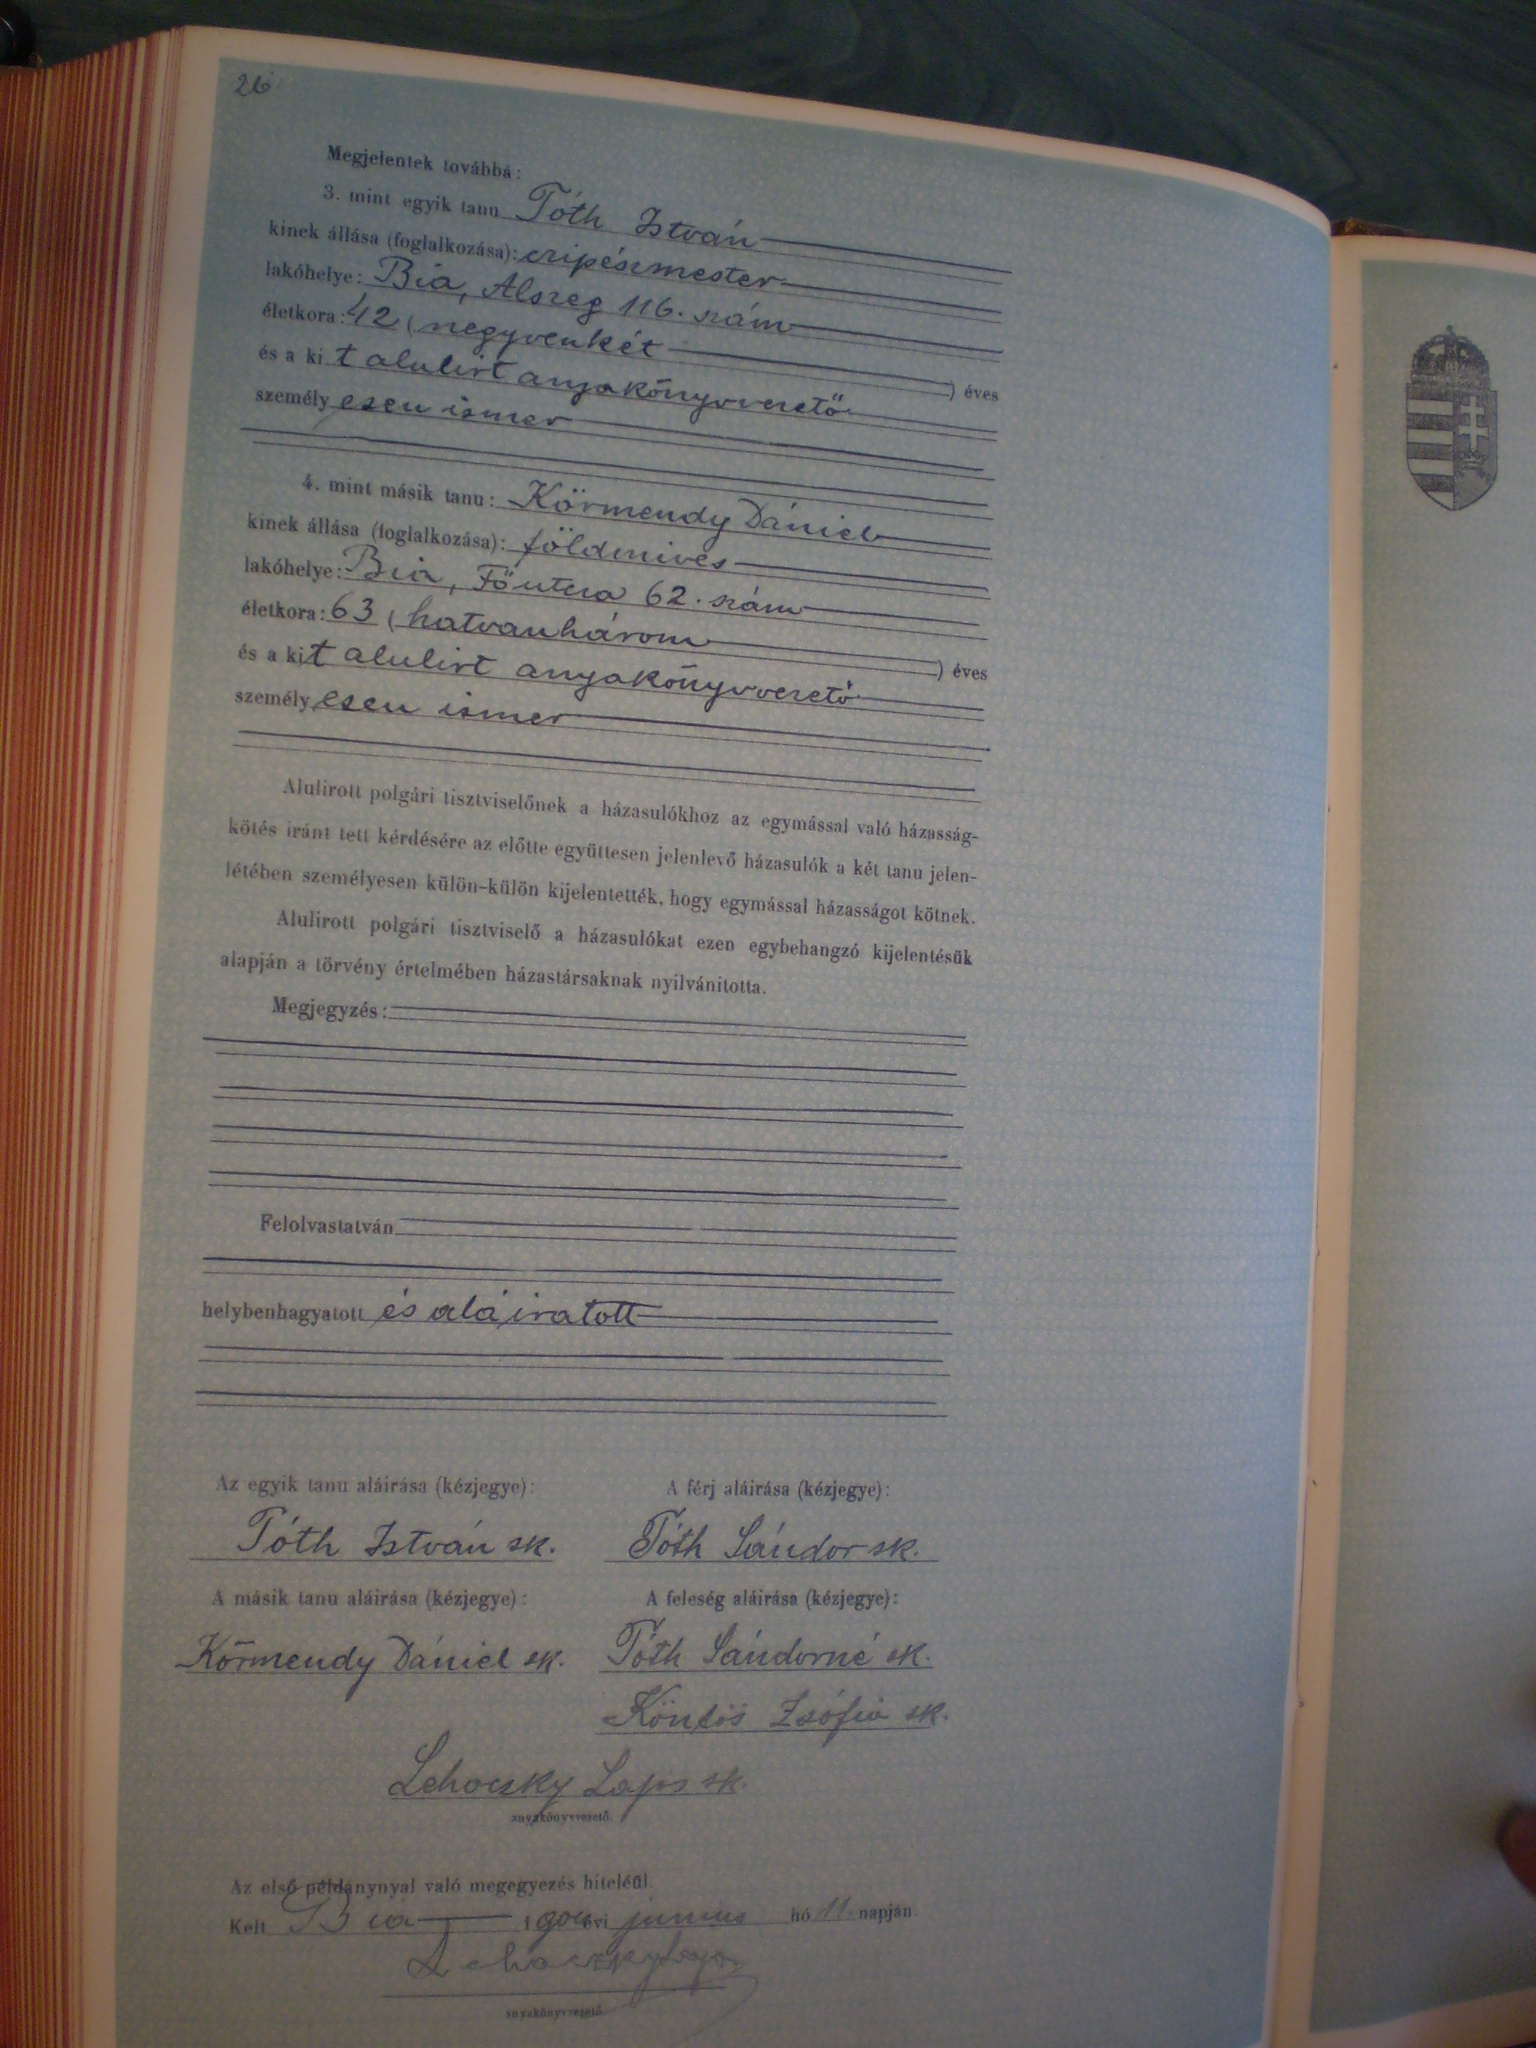 26
Megjelentek továbbá:
3. mint egyik tanu Tóth István
kinek állása (foglalkozása): czipészmester
lakóhelye: Bia, Alszeg 116. szám
életkora: 42 (negyvenkét ) éves
és a ki t alulirt anyakönyvvezető
személy esen ismer
4. mint másik tanu: Körmendy Dániel
kinek állása (foglalkozása): földmives
lakóhelye: Bia, Főutcza 62. szám
életkora: 63 (hatvanhárom ) éves
és a ki t alulirt anyakönyvvezető
személy esen ismer
Alulirott polgári tisztviselőnek a házasulókhoz az egymással való házasság-
kötés iránt tett kérdésére az előtte együttesen jelenlevő házasulók a két tanu jelen-
létében személyesen külön-külön kijelentették, hogy egymással házasságot kötnek.
Alulirott polgári tisztviselő a házasulókat ezen egybehangzó kijelentésük
alapján a törvény értelmében házastársaknak nyilvánitotta.
Megjegyzés:
Felolvastatván
helybenhagyatott és aláiratott
Az egyik tanu aláirása (kézjegye): A férj aláirása (kézjegye):
Tóth István sk. Tóth Sándor sk.
A másik tanu aláirása (kézjegye): A feleség aláirása (kézjegye):
Körmendy Dániel sk. Tóth Sándorné sk.
Köntös Zsófia sk.
Lehoczky Lajos sk.
anyakönyvvezető.
Az első példánynyal való megegyezés hiteléül.
Kelt Bia évi junius hó 11. napján.
Lehoczky Lajos
anyakönyvvezető.